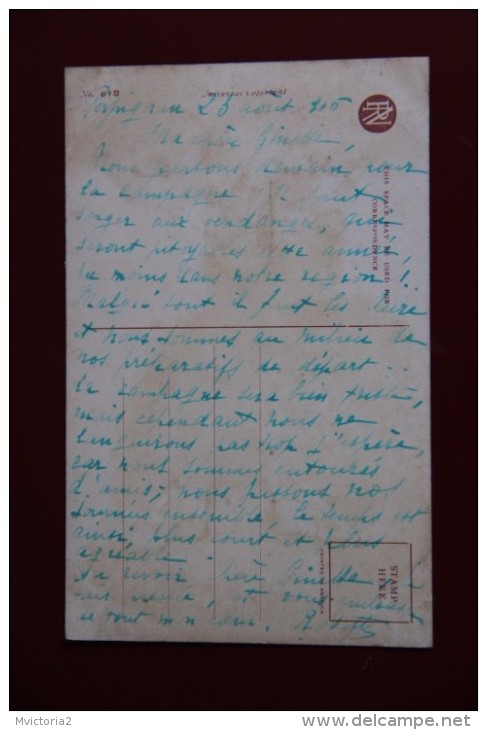 Perpignan 25 août 1915
Ma chère Ginette,
Nous partons demain pour
la campagne. Il faut
songer aux vendanges, qui
seront pitoyables cette année,
du moins dans notre région !
Malgré tout il faut les faire
et nous sommes au milieu de
nos préparatifs de départ...
la campagne sera bien triste,
mais cependant nous ne
languirons pas trop j'espère,
car nous sommes entourés
d'amis; nous passons nos
journées ensemble. Le temps est
ainsi plus court et plus
agréable.
Au revoir chère Ginette je
et vous embrasse
de tout mon cœur.
THIS SPACE MAY BE USED FOR
CORRESPONDENCE
STAMP
HERE
Mvictoria2
delcampe.net